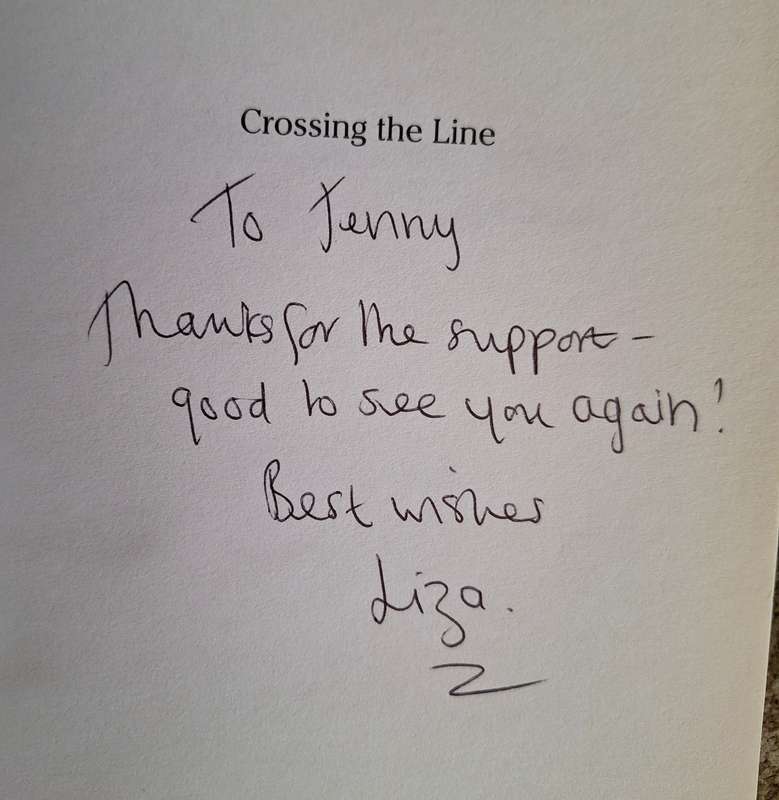 Crossing the Line
To Jenny
Thanks for the support -
good to see you again!
Best wishes
Liza.